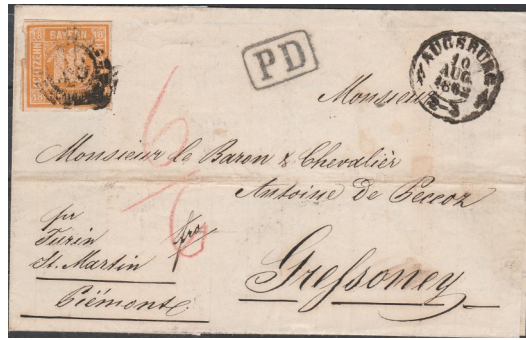 BAYERN
18
18
ACHTZEHN
18
PD
AUGSBURG
10
AUG.
186
Monsieur
Monsieur le Baron & Chevalier
Antoine De Peccoz
per
Turin
St. Martin
Piémonte
fro
Gressoney
6/6